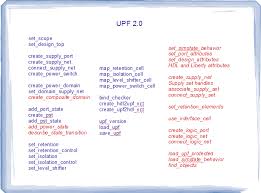 UPF 2.0
set_scope
set_design_top
create_supply_port
create_supply_net
connect_supply_net
create_power_switch
create_power_domain
set_domain_supply_net
create_composite_domain
add_port_state
create_pst
add_pst_state
add_power_state
describe_state_transition
set_retention
set_retention_control
set_isolation
set_isolation_control
set_level_shifter
map_retention_cell
map_isolation_cell
map_level_shifter_cell
map_power_switch_cell
bind_checker
create_hdl2upf_vct
create_upf2hdl_vct
upf_version
load_upf
save_upf
set_simstate_behavior
set_port_attributes
set_design_attributes
HDL and Liberty attributes
create_supply_set
Supply set handles
associate_supply_set
connect_supply_set
set_retention_elements
use_interface_cell
create_logic_port
create_logic_net
connect_logic_net
load_upf_protected
load_simstate_behavior
find_objects